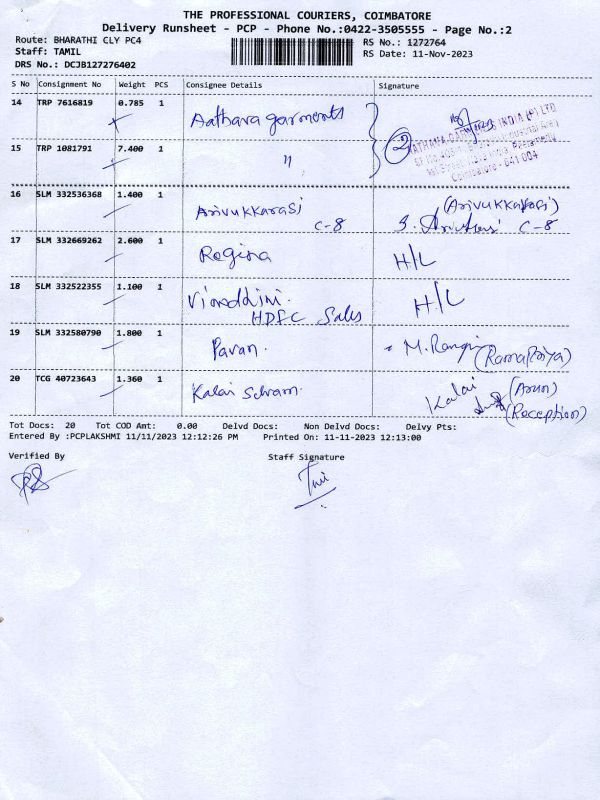 THE PROFESSIONAL COURIERS, COIMBATORE
Delivery Runsheet - PCP - Phone No.:0422-3505555 - Page No.:2
Route: BHARATHI CLY PC4 RS No.: 1272764
Staff: TAMIL RS Date: 11-Nov-2023
DRS No.: DCJB127276402
S No Consignment No Weight PCS Consignee Details Signature
14 TRP 7616819 0.785 1 Aathava garments
2
INDIA (P) LTD
Coimbatore - 641 004
15 TRP 1081791 7.400 1 "
16 SLM 332536368 1.400 1 Arivukkarasi (Arivukkarasi)
C-8 C-8
17 SLM 332669262 2.600 1 Regina H/L
18 SLM 332522355 1.100 1 Vinoddini. H/L
HDFC Sales
19 SLM 332580790 1.800 1 Pavan. M. Rang (RamaPriya)
20 TCG 40723643 1.360 1 Kalai Selvam. Kalai (Arun)
(Reception)
Tot Docs: 20 Tot COD Amt: 0.00 Delvd Docs: Non Delvd Docs: Delvy Pts:
Entered By :PCPLAKSHMI 11/11/2023 12:12:26 PM Printed On: 11-11-2023 12:13:00
Verified By Staff Signature